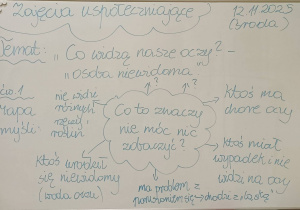 Zajęcia uspołeczniające
12.11.2025
(środa)
Temat: „Co widzą nasze oczy? –
– osoba niewidoma
ćw. 1
Mapa
myśli:
nie widzi
różnych
rzeczy i
roślin
? ?
Co to znaczy
nie móc nic
zobaczyć?
ktoś ma
chore oczy
ktoś miał
wypadek i nie
widzi na oczy
ktoś urodził
się niewidomy
ma problem z
poruszaniem się → chodzi z laską